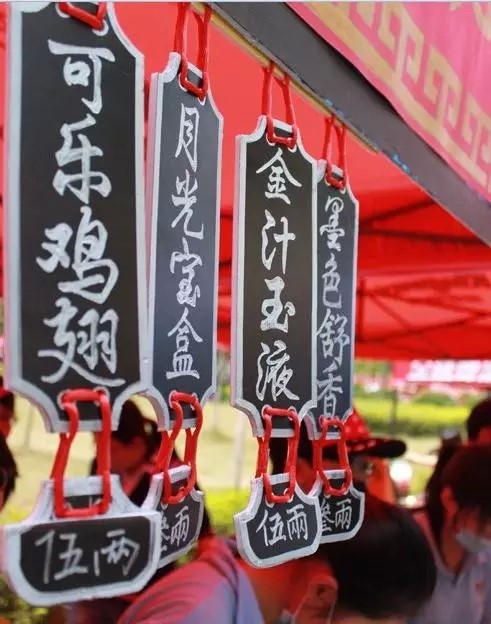 可乐鸡翅
伍两
月光宝盒
叁兩
金汁玉液
伍兩
墨色舒香
叁兩